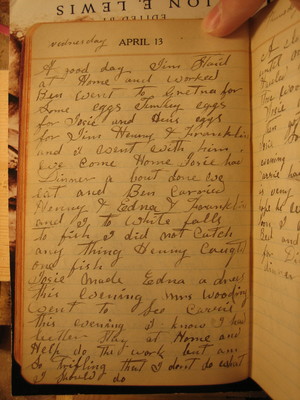 ION E. LEWIS
EDITED BY
Wednesday APRIL 13
A good day Jim Staid
at Home and worked
Ben went to Gretna for
Some eggs Turkey eggs
for Josie and Hens eggs
for Jim Henny & Franklin
and I went with him.
We Come Home Josie had
Dinner a bout done we
eat and Ben Carried
Henny & Edna & Franklin
and I to White falls
to fish I did not Catch
any thing Henny Caught
one fish
Josie Made Edna a dress
this Evening Mrs Wooding
went to See Carrie
this evening I know I had
better Stay at Home and
Help do the work but am
So trifling that I dont do what
I Should do